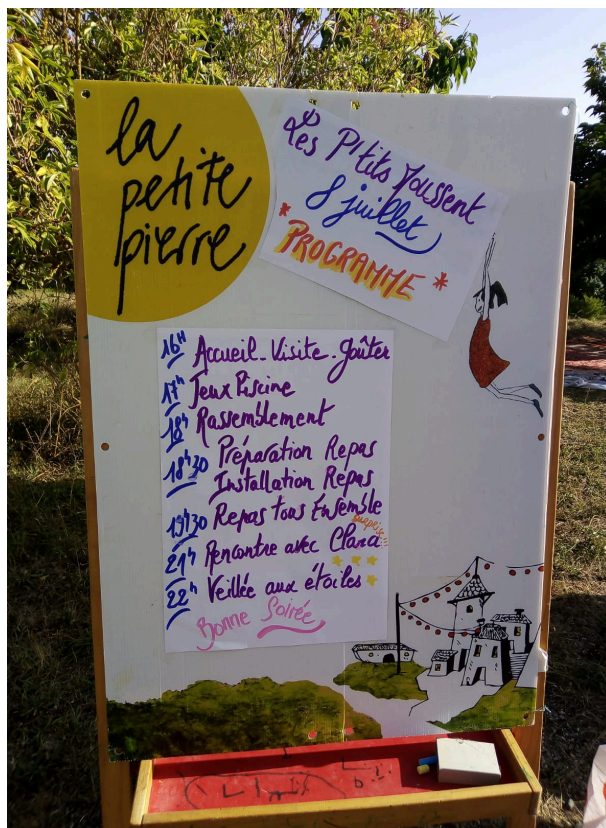 la
petite
pierre
Les Ptits Poussent
8 juillet
* PROGRAMME *
16H Accueil - Visite - goûter
17h Jeux Piscine
18h Rassemblement
18h30 Préparation Repas
Installation Repas
19h30 Repas tous Ensemble
surprise!!!
21h Rencontre avec Clara
22h Veillée aux étoiles
Bonne Soirée